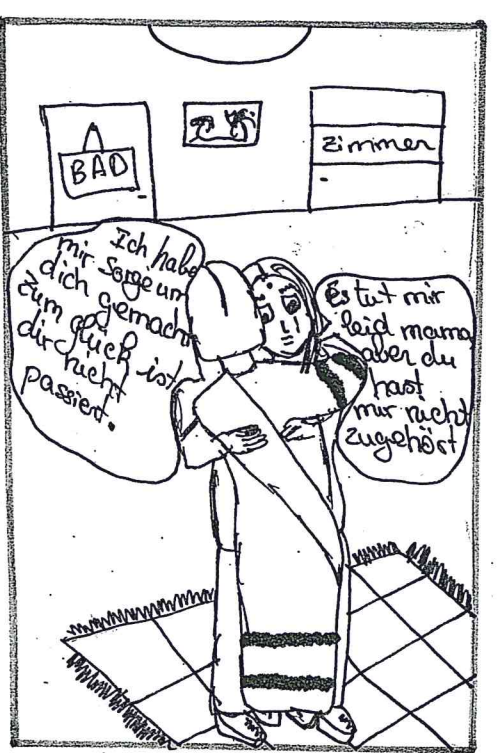 BAD
Zimmer
Ich habe
mir sorge um
dich gemacht
zum glück ist
dir nicht
passiert.
Es tut mir
leid mama
aber du
hast
mir nicht
zugehört